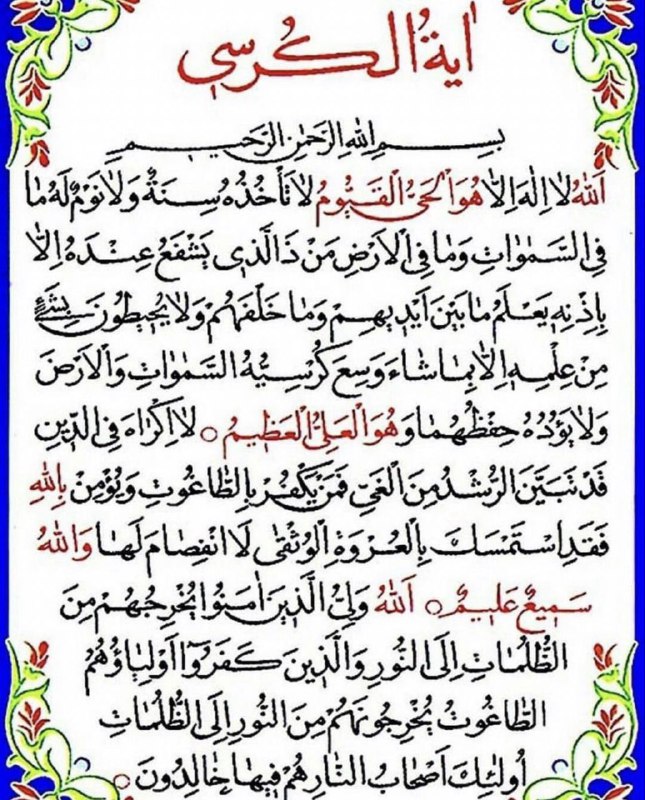 اٰيةُ الكُرسي
بسم الله الرحمن الرحيم
اَللهُ لا اِلٰهَ اِلاّٰ هُوَ الْحَىُّ الْقَيُّومُ لاٰ تَأخُذُهُ سِنَةٌ وَلاٰ نَوْمٌ لَهُ مٰا
فِى السَّمٰوٰاتِ وَمٰا فِى الْاَرْضِ مَنْ ذَا الَّذى يَشْفَعُ عِنْدَهُ اِلاّٰ
بِاِذْنِهِ يَعْلَمُ مٰا بَيْنَ اَيْديهِمْ وَمٰا خَلْفَهُمْ وَلاٰ يُحيطُونَ بِشَىْءٍ
مِنْ عِلْمِهِ اِلاّٰ بِمٰا شٰاءَ وَسِعَ كُرْسِيُّهُ السَّمٰوٰاتِ وَالْاَرْضَ
وَلاٰ يَؤُدُهُ حِفْظُهُمٰا وَهُوَ الْعَلِىُّ الْعَظيمُ ○ لاٰ اِكْرٰاهَ فِى الدّينِ
قَدْ تَبَيَّنَ الرُّشْدُ مِنَ الْغَىِّ فَمَنْ يَكْفُرْ بِالطّٰاغُوتِ وَيُؤْمِنْ بِاللهِ
فَقَدِ اسْتَمْسَكَ بِالْعُرْوَةِ الْوُثْقٰى لَا انْفِصٰامَ لَهٰا وَاللهُ
سَميعٌ عَليمٌ ○ اَللهُ وَلِىُّ الَّذينَ اٰمَنُوا يُخْرِجُهُمْ مِنَ
الظُّلُمٰاتِ اِلَى النُّورِ وَالَّذينَ كَفَرُوا اَوْلِيٰاؤُهُمُ
الطّٰاغُوتُ يُخْرِجُونَهُمْ مِنَ النُّورِ اِلَى الظُّلُمٰاتِ
اُولٰئِكَ اَصْحٰابُ النّٰارِ هُمْ فيهٰا خٰالِدُونَ ○